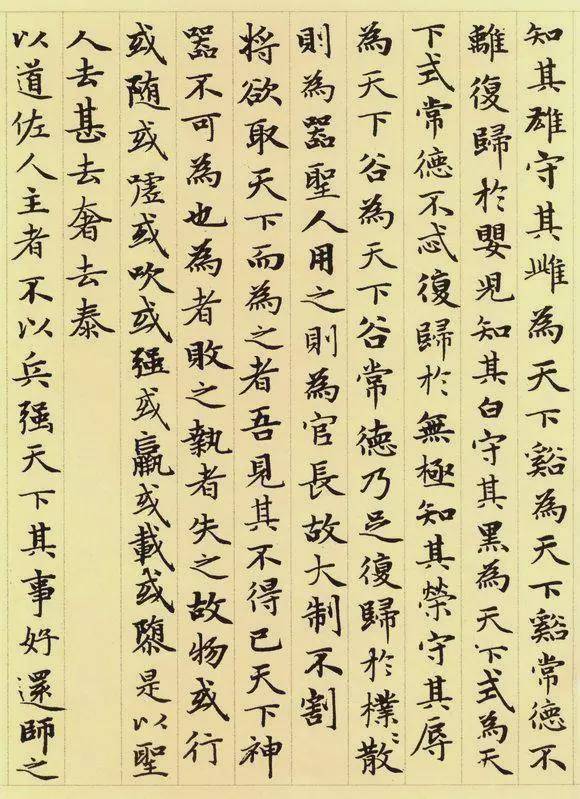 知其雄守其雌為天下谿為天下谿常德不
離復歸於嬰兒知其白守其黑為天下式為天
下式常德不忒復歸於無極知其榮守其辱
為天下谷為天下谷常德乃足復歸於樸〻散
則為器聖人用之則為官長故大制不割
將欲取天下而為之者吾見其不得已天下神
器不可為也為者敗之執者失之故物或行
或随或嘘或吹或强或羸或載或隳是以聖
人去甚去奢去泰
以道佐人主者不以兵强天下其事好還師之